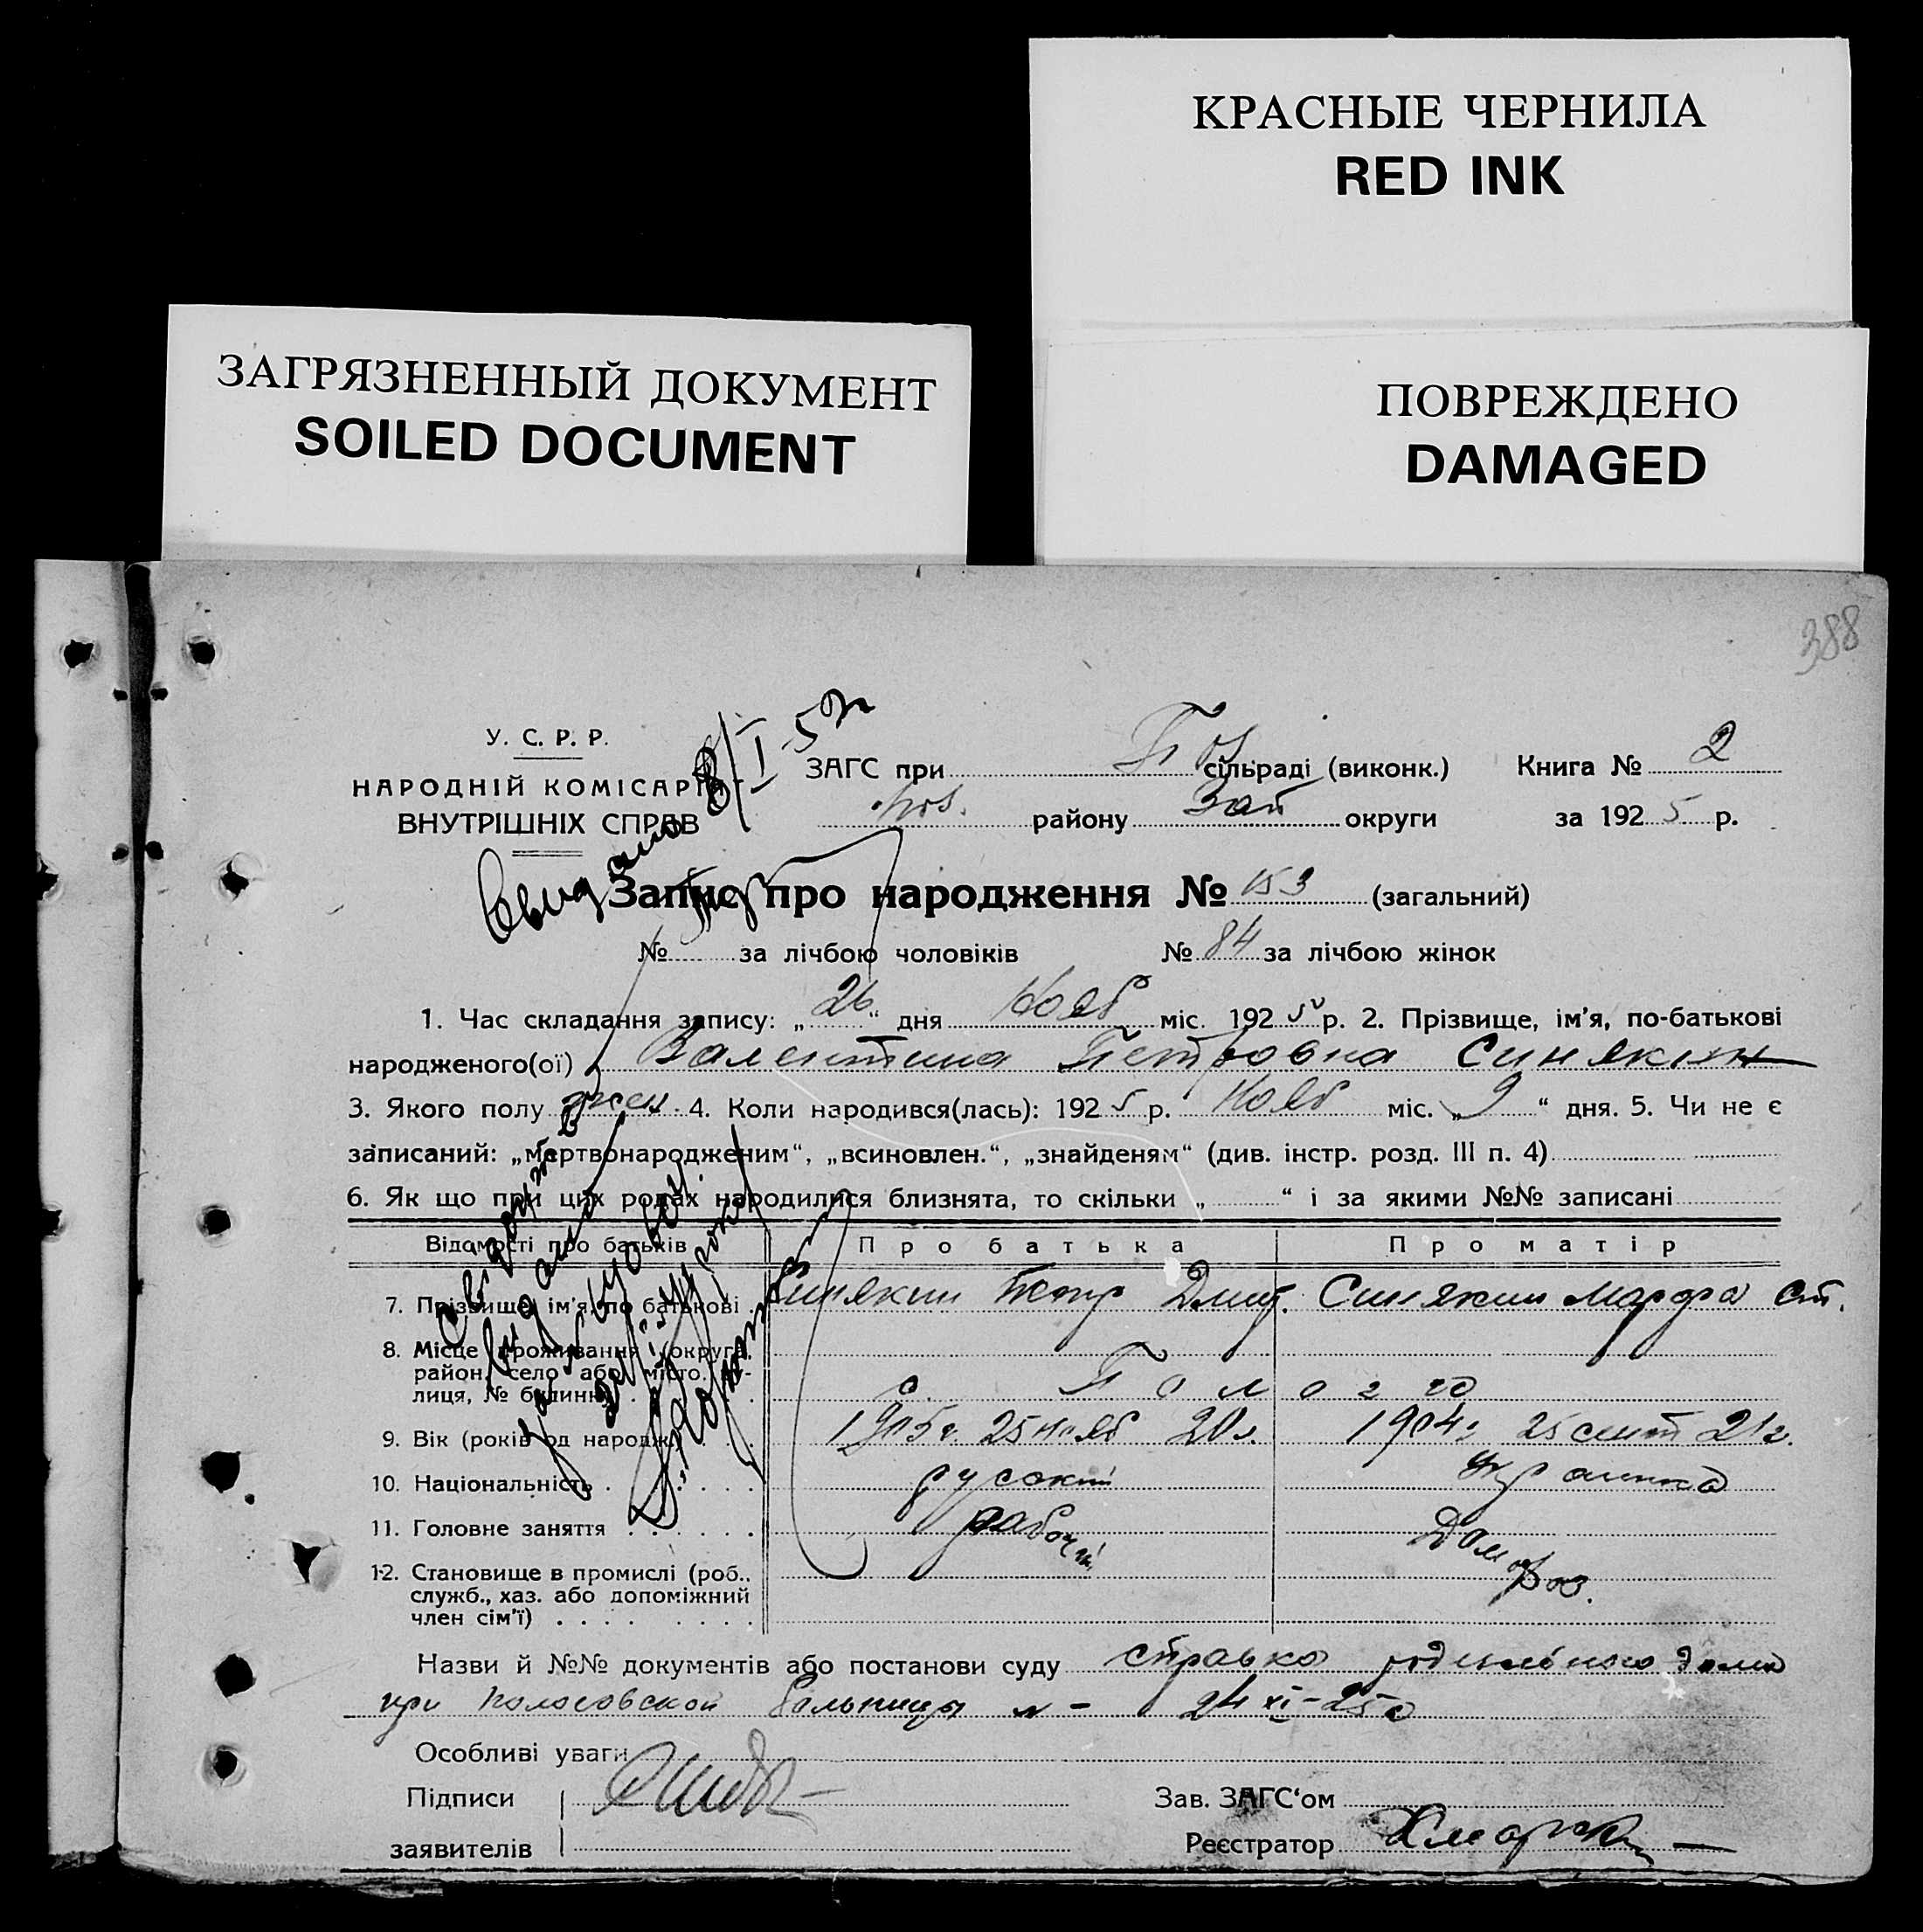 КРАСНЫЕ ЧЕРНИЛА
RED INK
ЗАГРЯЗНЕННЫЙ ДОКУМЕНТ
SOILED DOCUMENT
ПОВРЕЖДЕНО
DAMAGED
388
У. С. Р. Р.
НАРОДНІЙ КОМІСАРІЯТ
ВНУТРІШНІХ СПРАВ
8/I-52
ЗАГС при Пол сільраді (виконк.) Книга № 2
Пол. району Зап округи за 1925 р.
Запис про народження № 153 (загальний)
№ за лічбою чоловіків № 84 за лічбою жінок
1. Час складання запису: „26“ дня Нояб міс. 1925 р. 2. Прізвище, ім'я, по-батькові
народженого(ої) Валентина Петровна Синякин
3. Якого полу жен. 4. Коли народився(лась): 1925 р. Нояб міс. „9“ дня. 5. Чи не є
записаний: „мертвонародженим“, „всиновлен.“, „знайденям“ (див. інстр. розд. III п. 4)
6. Як що при цих родах народилися близнята, то скільки „ “ і за якими №№ записані
Відомості про батьків Про батька Про матір
7. Прізвище, ім'я, по батькові Синякин Петр Дмит. Синякин Марфа Ст.
8. Місце проживання (округа,
район, село або місто, ву-
лиця, № будинку) с. Полого
9. Вік (років од народж.) 1905 г. 25 нояб 20 л. 1904 г 25 сент 21 г.
10. Національність русский украинка
11. Головне заняття рабочий Домохоз.
12. Становище в промислі (роб.,
служб., хаз. або допоміжний
член сім'ї)
Назви й №№ документів або постанови суду справка родильного дома
при Пологовской больницы № - 24 XI-25
Особливі уваги
Підписи Зав. ЗАГС'ом
заявителів Реєстратор